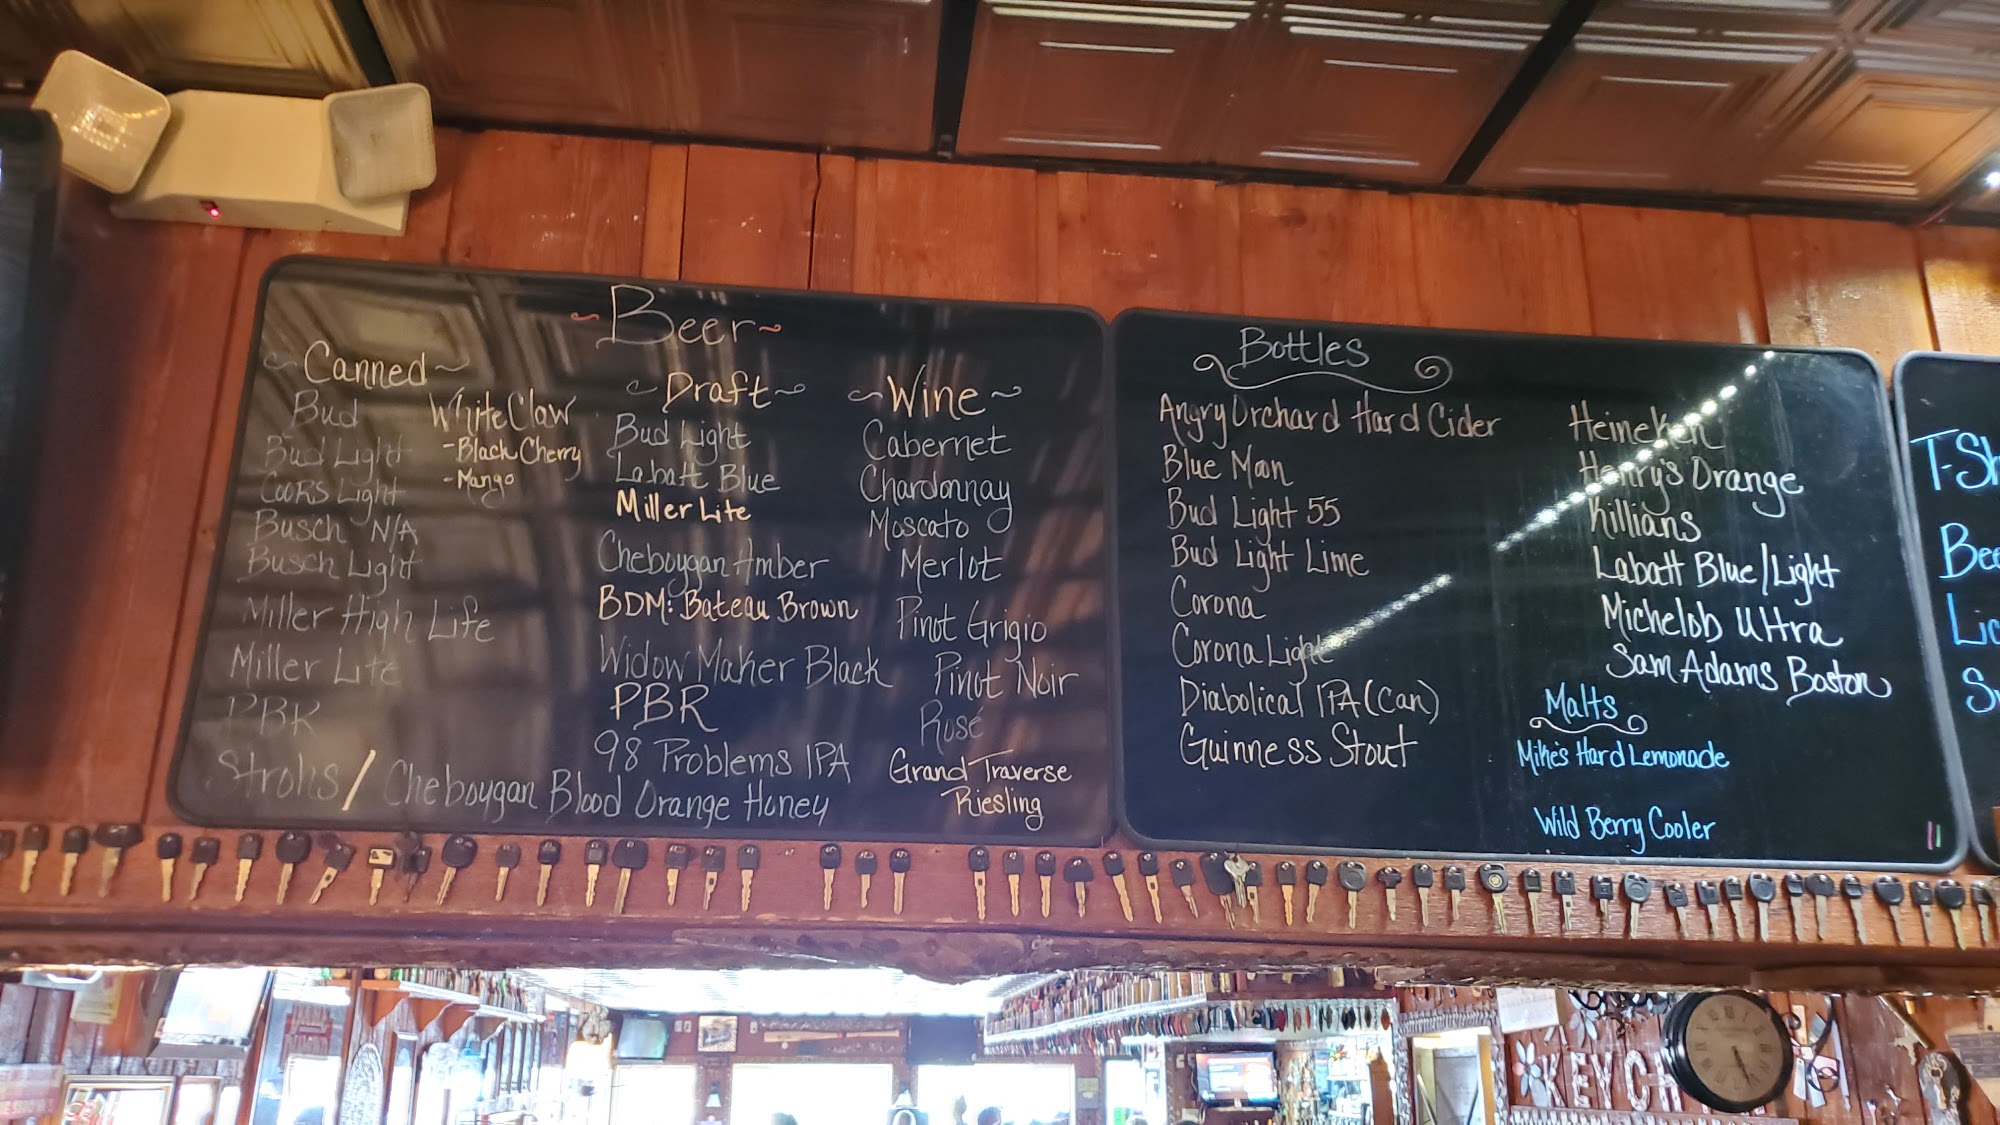 ~Beer~
~Canned~
Bud
Bud Light
Coors Light
Busch N/A
Busch Light
Miller High Life
Miller Lite
PBR
Strohs / Cheboygan Blood Orange Honey
White Claw
-Black Cherry
-Mango
~Draft~
Bud Light
Labatt Blue
Miller Lite
Cheboygan Amber
BDM: Bateau Brown
Widow Maker Black
PBR
98 Problems IPA
~Wine~
Cabernet
Chardonnay
Moscato
Merlot
Pinot Grigio
Pinot Noir
Rosé
Grand Traverse
Riesling
Bottles
Angry Orchard Hard Cider
Blue Moon
Bud Light 55
Bud Light Lime
Corona
Corona Light
Diabolical IPA (Can)
Guinness Stout
Heineken
Henry's Orange
Killians
Labatt Blue/Light
Michelob Ultra
Sam Adams Boston
Malts
Mike's Hard Lemonade
Wild Berry Cooler
T-Sh
Bee
Lic
KEYCH